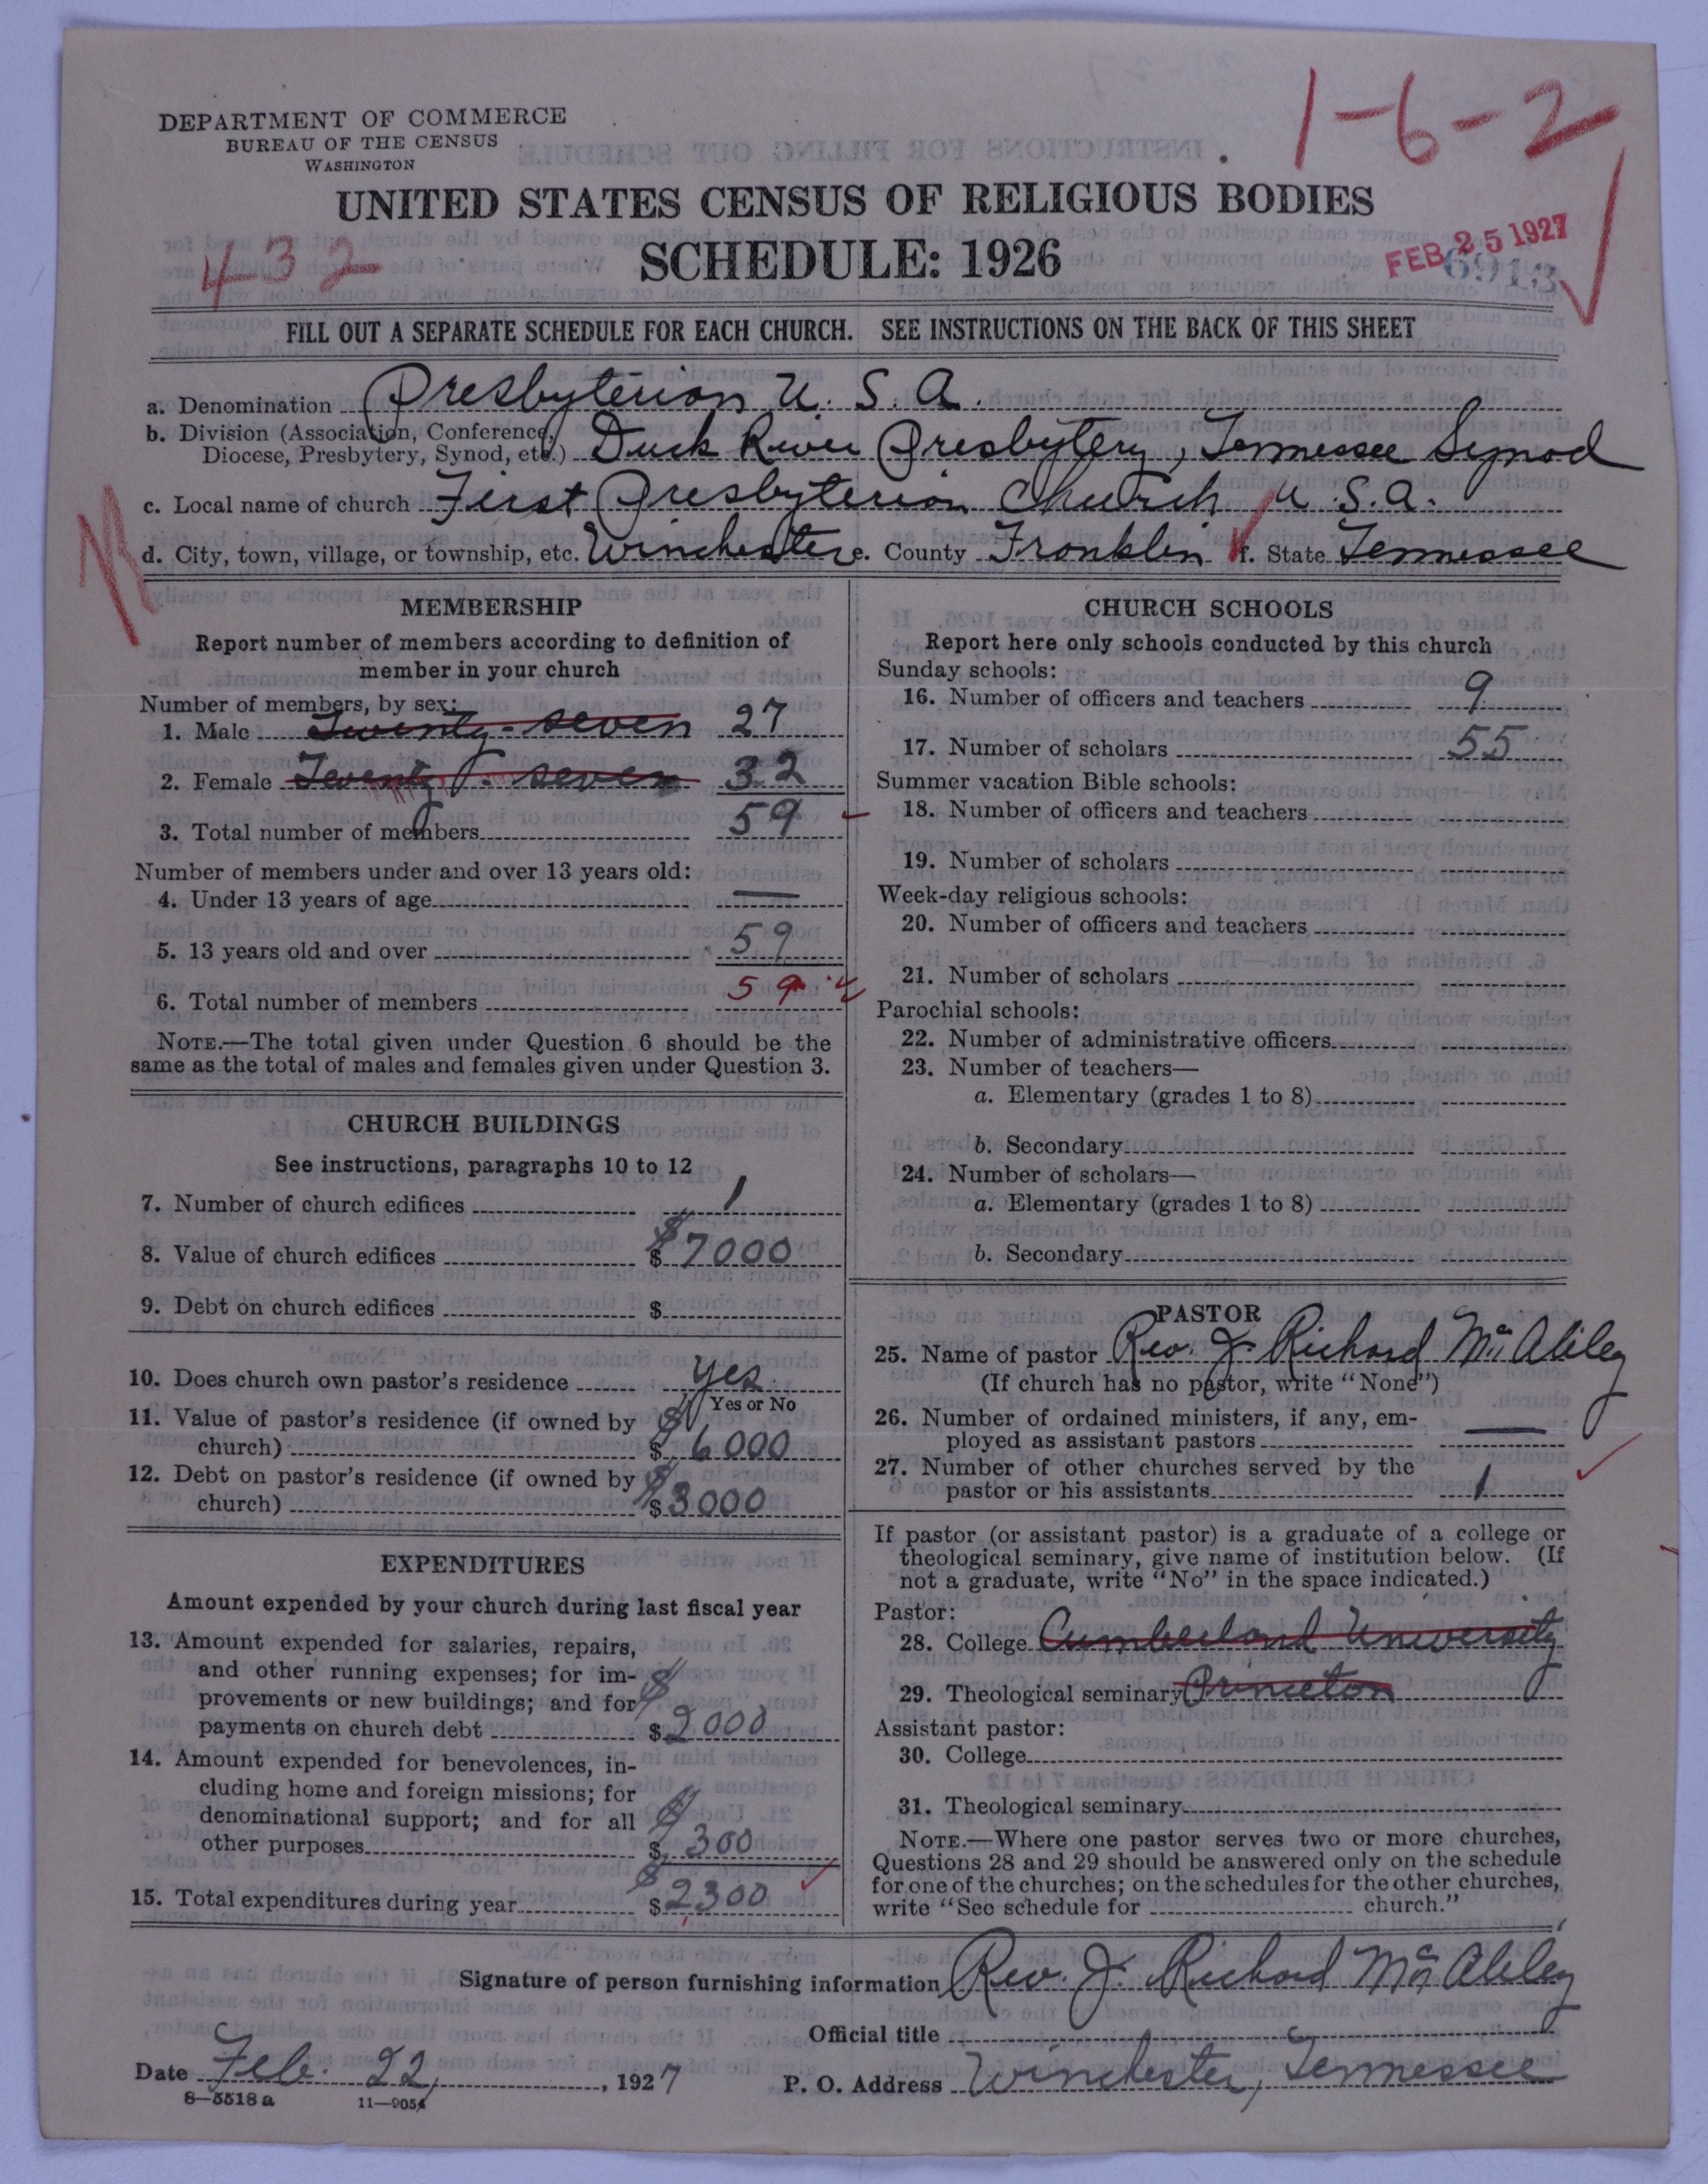 1-6-2
DEPARTMENT OF COMMERCE
BUREAU OF THE CENSUS
WASHINGTON
UNITED STATES CENSUS OF RELIGIOUS BODIES
432
SCHEDULE: 1926
FEB 25 1927
6913
FILL OUT A SEPARATE SCHEDULE FOR EACH CHURCH. SEE INSTRUCTIONS ON THE BACK OF THIS SHEET
a. Denomination Presbyterian U. S. A.
b. Division (Association, Conference, Diocese, Presbytery, Synod, etc.) Duck River Presbytery, Tennessee Synod
c. Local name of church First Presbyterian Church U.S.A.
d. City, town, village, or township, etc. Winchester e. County Franklin f. State Tennessee
MEMBERSHIP
Report number of members according to definition of
member in your church
Number of members, by sex:
1. Male Twenty-seven 27
2. Female Twenty-seven 32
3. Total number of members 59
Number of members under and over 13 years old:
4. Under 13 years of age —
5. 13 years old and over 59
6. Total number of members 59
NOTE.—The total given under Question 6 should be the
same as the total of males and females given under Question 3.
CHURCH BUILDINGS
See instructions, paragraphs 10 to 12
7. Number of church edifices 1
8. Value of church edifices $ 7000
9. Debt on church edifices $
10. Does church own pastor's residence yes
Yes or No
11. Value of pastor's residence (if owned by
church) $ 6000
12. Debt on pastor's residence (if owned by
church) $ 3000
EXPENDITURES
Amount expended by your church during last fiscal year
13. Amount expended for salaries, repairs,
and other running expenses; for im-
provements or new buildings; and for
payments on church debt $ 2000
14. Amount expended for benevolences, in-
cluding home and foreign missions; for
denominational support; and for all
other purposes $ 300
15. Total expenditures during year $ 2300
CHURCH SCHOOLS
Report here only schools conducted by this church
Sunday schools:
16. Number of officers and teachers 9
17. Number of scholars 55
Summer vacation Bible schools:
18. Number of officers and teachers
19. Number of scholars
Week-day religious schools:
20. Number of officers and teachers
21. Number of scholars
Parochial schools:
22. Number of administrative officers
23. Number of teachers—
a. Elementary (grades 1 to 8)
b. Secondary
24. Number of scholars—
a. Elementary (grades 1 to 8)
b. Secondary
PASTOR
25. Name of pastor Rev. J. Richard
(If church has no pastor, write "None")
26. Number of ordained ministers, if any, em-
ployed as assistant pastors —
27. Number of other churches served by the
pastor or his assistants 1
If pastor (or assistant pastor) is a graduate of a college or
theological seminary, give name of institution below. (If
not a graduate, write "No" in the space indicated.)
Pastor:
28. College Cumberland University
29. Theological seminary Princeton
Assistant pastor:
30. College
31. Theological seminary
NOTE.—Where one pastor serves two or more churches,
Questions 28 and 29 should be answered only on the schedule
for one of the churches; on the schedules for the other churches,
write "See schedule for church."
Signature of person furnishing information Rev. J. Richard
Official title
Date Feb. 22, 1927 P. O. Address Winchester, Tennessee
8—5518 a 11—9054